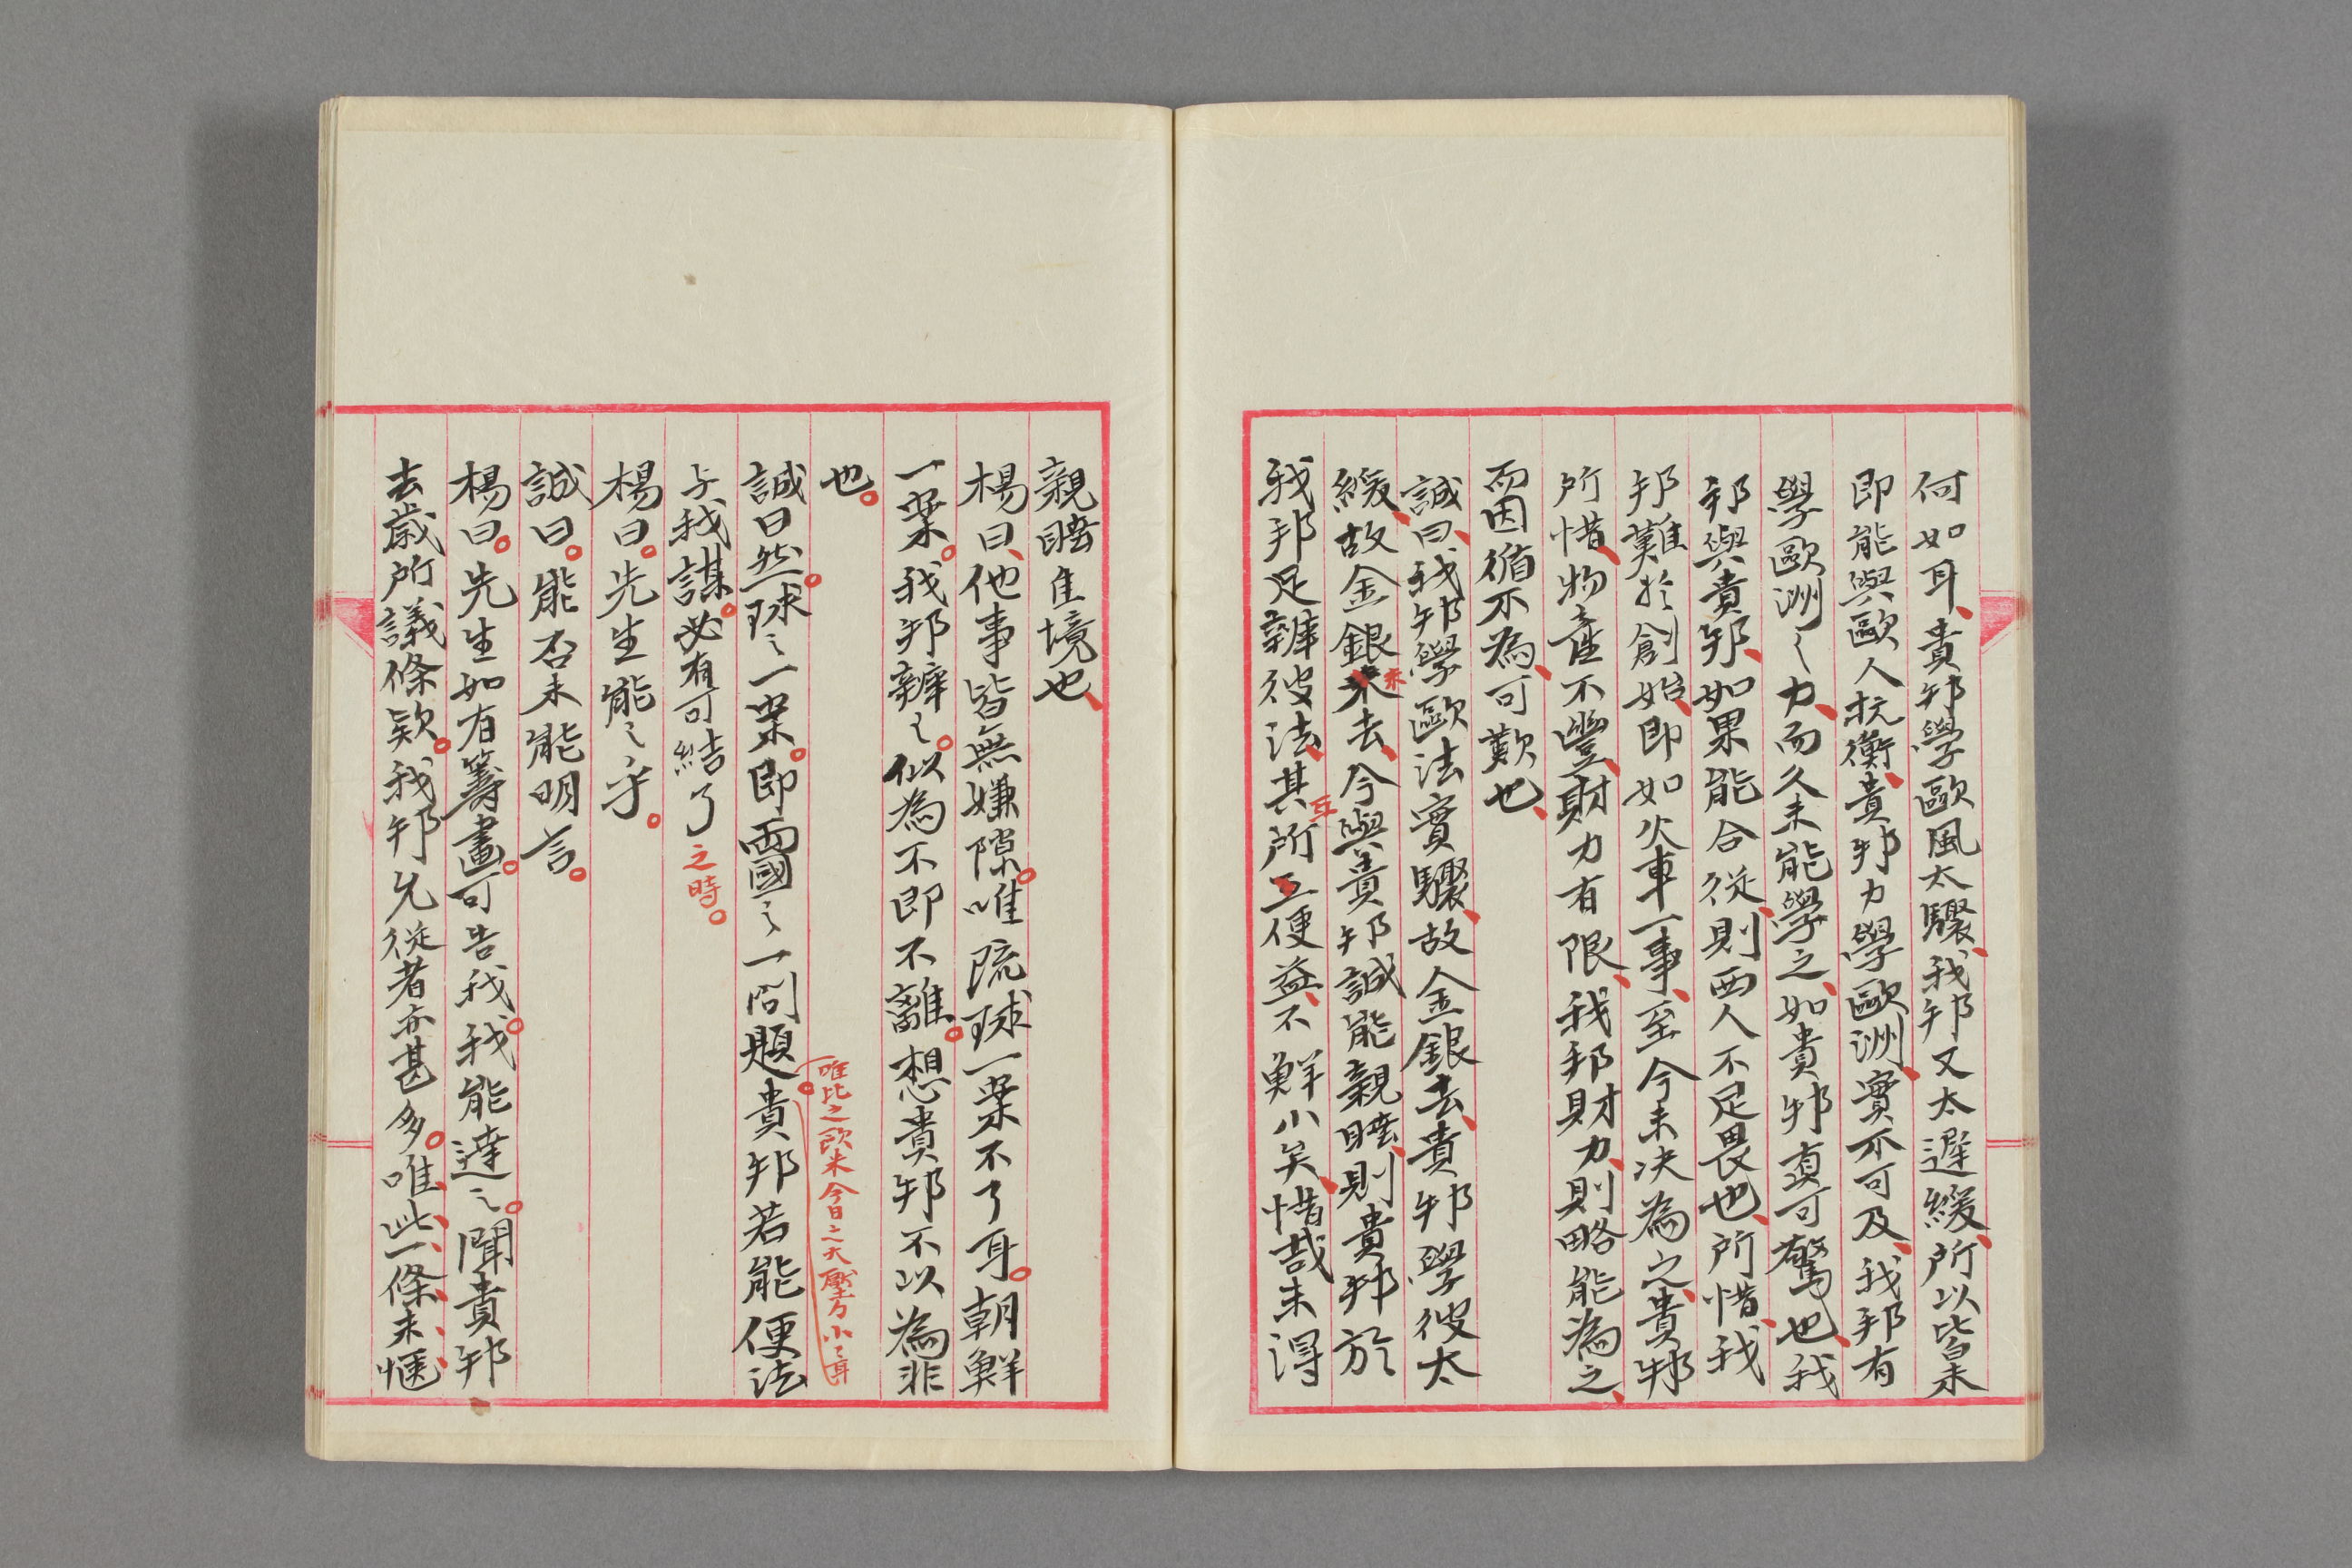 何如耳、貴邦學歐風太驟、我邦又太遲緩、所以皆未
即能與歐人抗衡、貴邦力學歐洲、實不可及、我邦有
學歐洲之力、而久未能學之、如貴邦真可驚也、我
邦與貴邦、如果能合從、則西人不足畏也、所惜、我
邦難於創始、即如火車一事、至今未決為之、貴邦
所惜、物產不豐、財力有限、我邦財力、則略能為之、
而因循不為、可歎也、
誠曰、我邦學歐法實驟、故金銀去、貴邦學彼太
緩、故金銀未去、今與貴邦誠能親睦、則貴邦於
未
我邦足辦彼法、其所互便益、不鮮小矣、惜哉未得
互
親睦佳境也、
楊曰、他事皆無嫌隙。唯琉球一案不了耳。朝鮮
一案。我邦辦之。似為不即不離。想貴邦不以為非
也。
唯比之歐米今日之大壓力小々耳
誠曰然。球之一案。即兩國之一問題。貴邦若能便法
与我謀。必有可結了之時。
楊曰。先生能之乎。
誠曰。能否未能明言。
楊曰。先生如有籌畫。可告我。我能達之。聞貴邦
去歲所議條款。我邦允從者亦甚多。唯、此、一條、未、愜